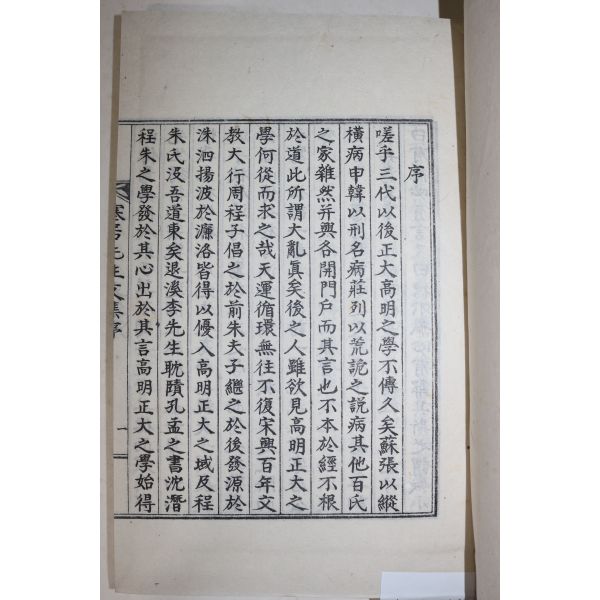 序
嗟乎三代以後正大高明之學不傳久矣蘇張以縱
橫病申韓以刑名病莊列以荒詭之說病其他百氏
之家雜然并興各開門戶而其言也不本於經不根
於道此所謂大亂眞矣後之人雖欲見高明正大之
學何從而求之哉天運循環無往不復宋興百年文
教大行周程子倡之於前朱夫子繼之於後發源於
洙泗揚波於濂洛皆得以優入高明正大之域及程
朱氏沒吾道東矣退溪李先生耽賾孔孟之書沈潛
程朱之學發於其心出於其言高明正大之學始得
先生文集序
一